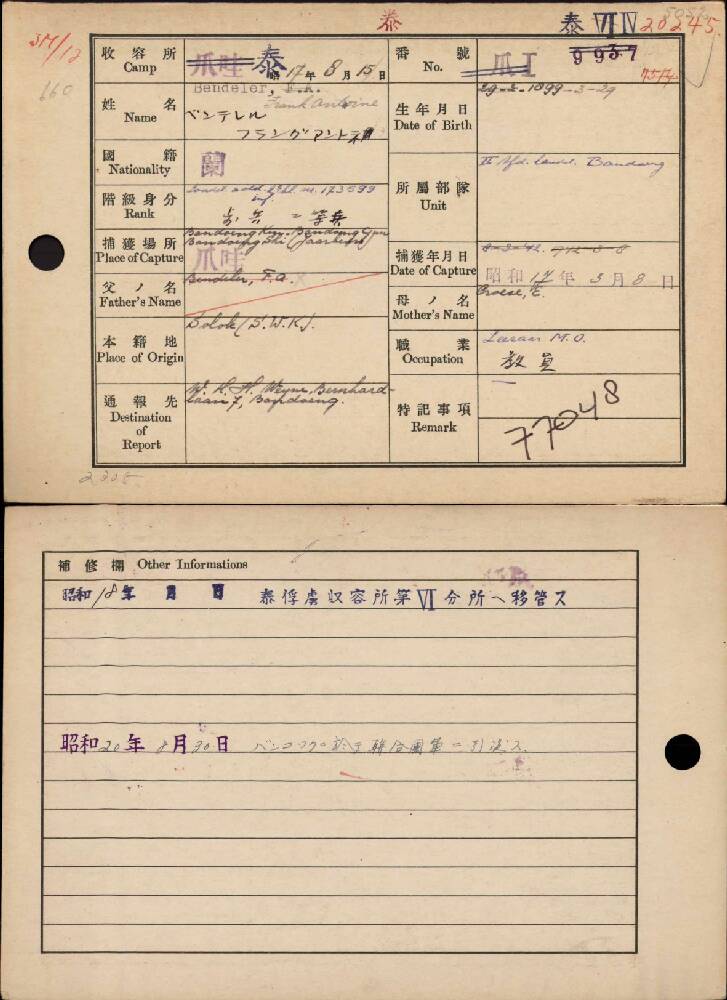 泰
泰 VI IV 28245
3M/12
660
收容所 Camp 爪哇 泰 昭 17年 8月 15日
番號 No. 爪I 9937
Bendeler, F.A.
Frank Antoine
姓名 Name ベンデレル
フランク アントネ
生年月日 Date of Birth 29-3-1899-3-29
國籍 Nationality 蘭
階級身分 Rank 173599
歩兵 二等兵
所屬部隊 Unit II Afd. Landst. Bandoeng
捕獲場所 Place of Capture Bandoeng
Bandoeng Shi (Jaarbeurs)
爪哇
捕獲年月日 Date of Capture 昭和 17年 3月 8日
父ノ名 Father's Name Bendeler, F.A.
母ノ名 Mother's Name Croese, E.
本籍地 Place of Origin Solok (S.W.K).
職業 Occupation Leraar M.O.
教員
通報先 Destination of Report W. K. H. Weyne, Bernhard-
laan 7, Bandoeng.
特記事項 Remark 77048
補修欄 Other Informations
昭和 18年 月 日 泰俘虜収容所第 VI 分所ヘ移管ス
昭和 20年 8月 30日 バンコックニ於テ聯合國軍ニ引渡ス